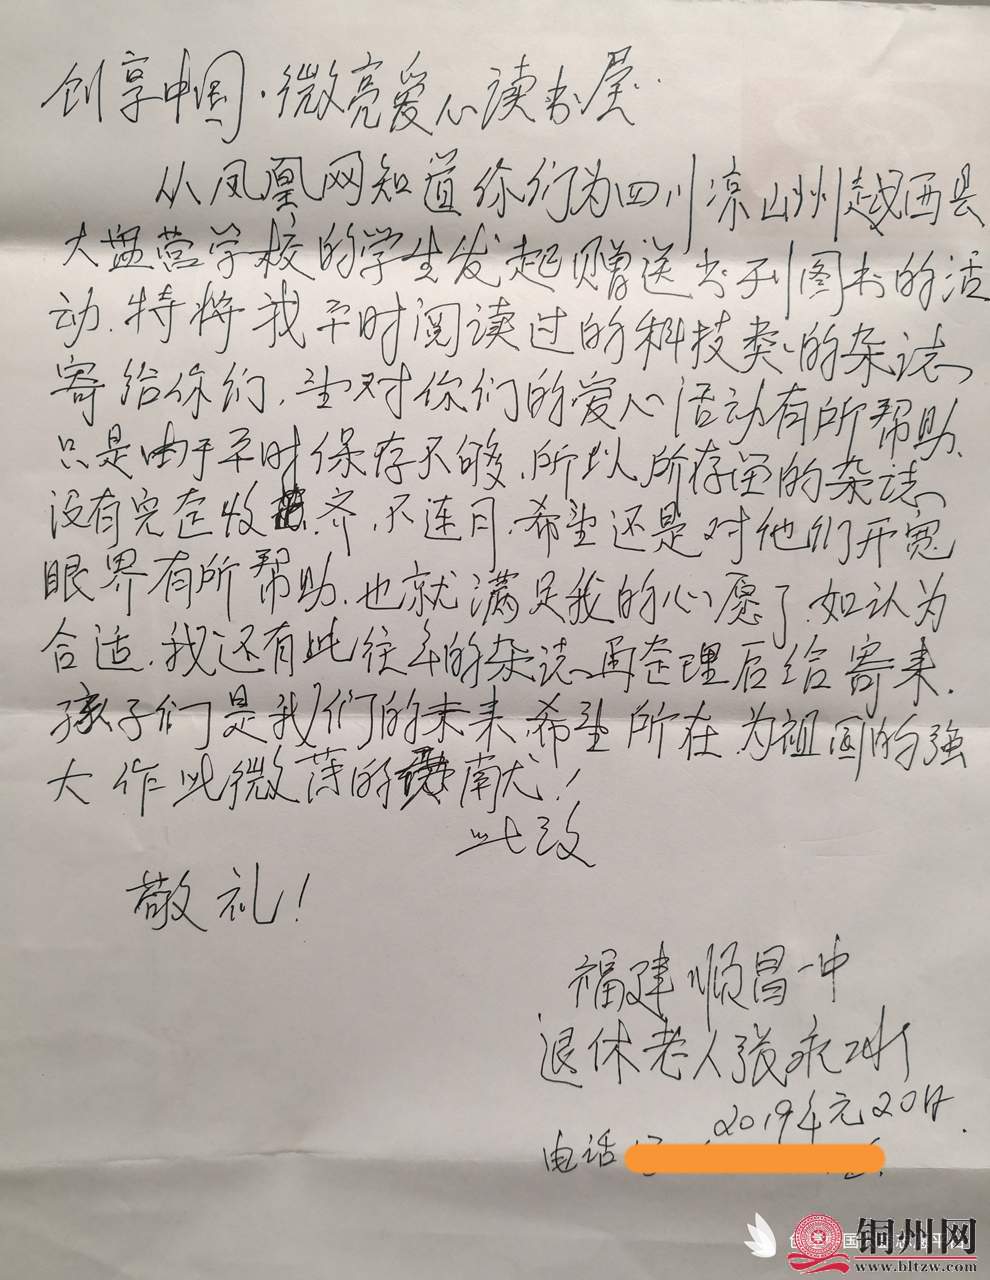 创享中国·微亮爱心读书屋:
从凤凰网知道你们为四川凉山州越西县
大盘营学校的学生发起赠送书刊图书的活
动.特将我平时阅读过的科技类的杂志
寄给你们.望对你们的爱心活动有所帮助.
只是由于平时保存不够.所以所存的杂志
没有完整收齐.不连月.希望还是对他们开宽
眼界有所帮助.也就满足我的心愿了.如认为
合适.我还有些往年的杂志再整理后给寄来.
孩子们是我们的未来.希望所在.为祖国的强
大作些微薄的贡献!
此致
敬礼!
福建顺昌一中
退休老人张永
2019年元20日.
电话
铜州网
www.bltzw.com